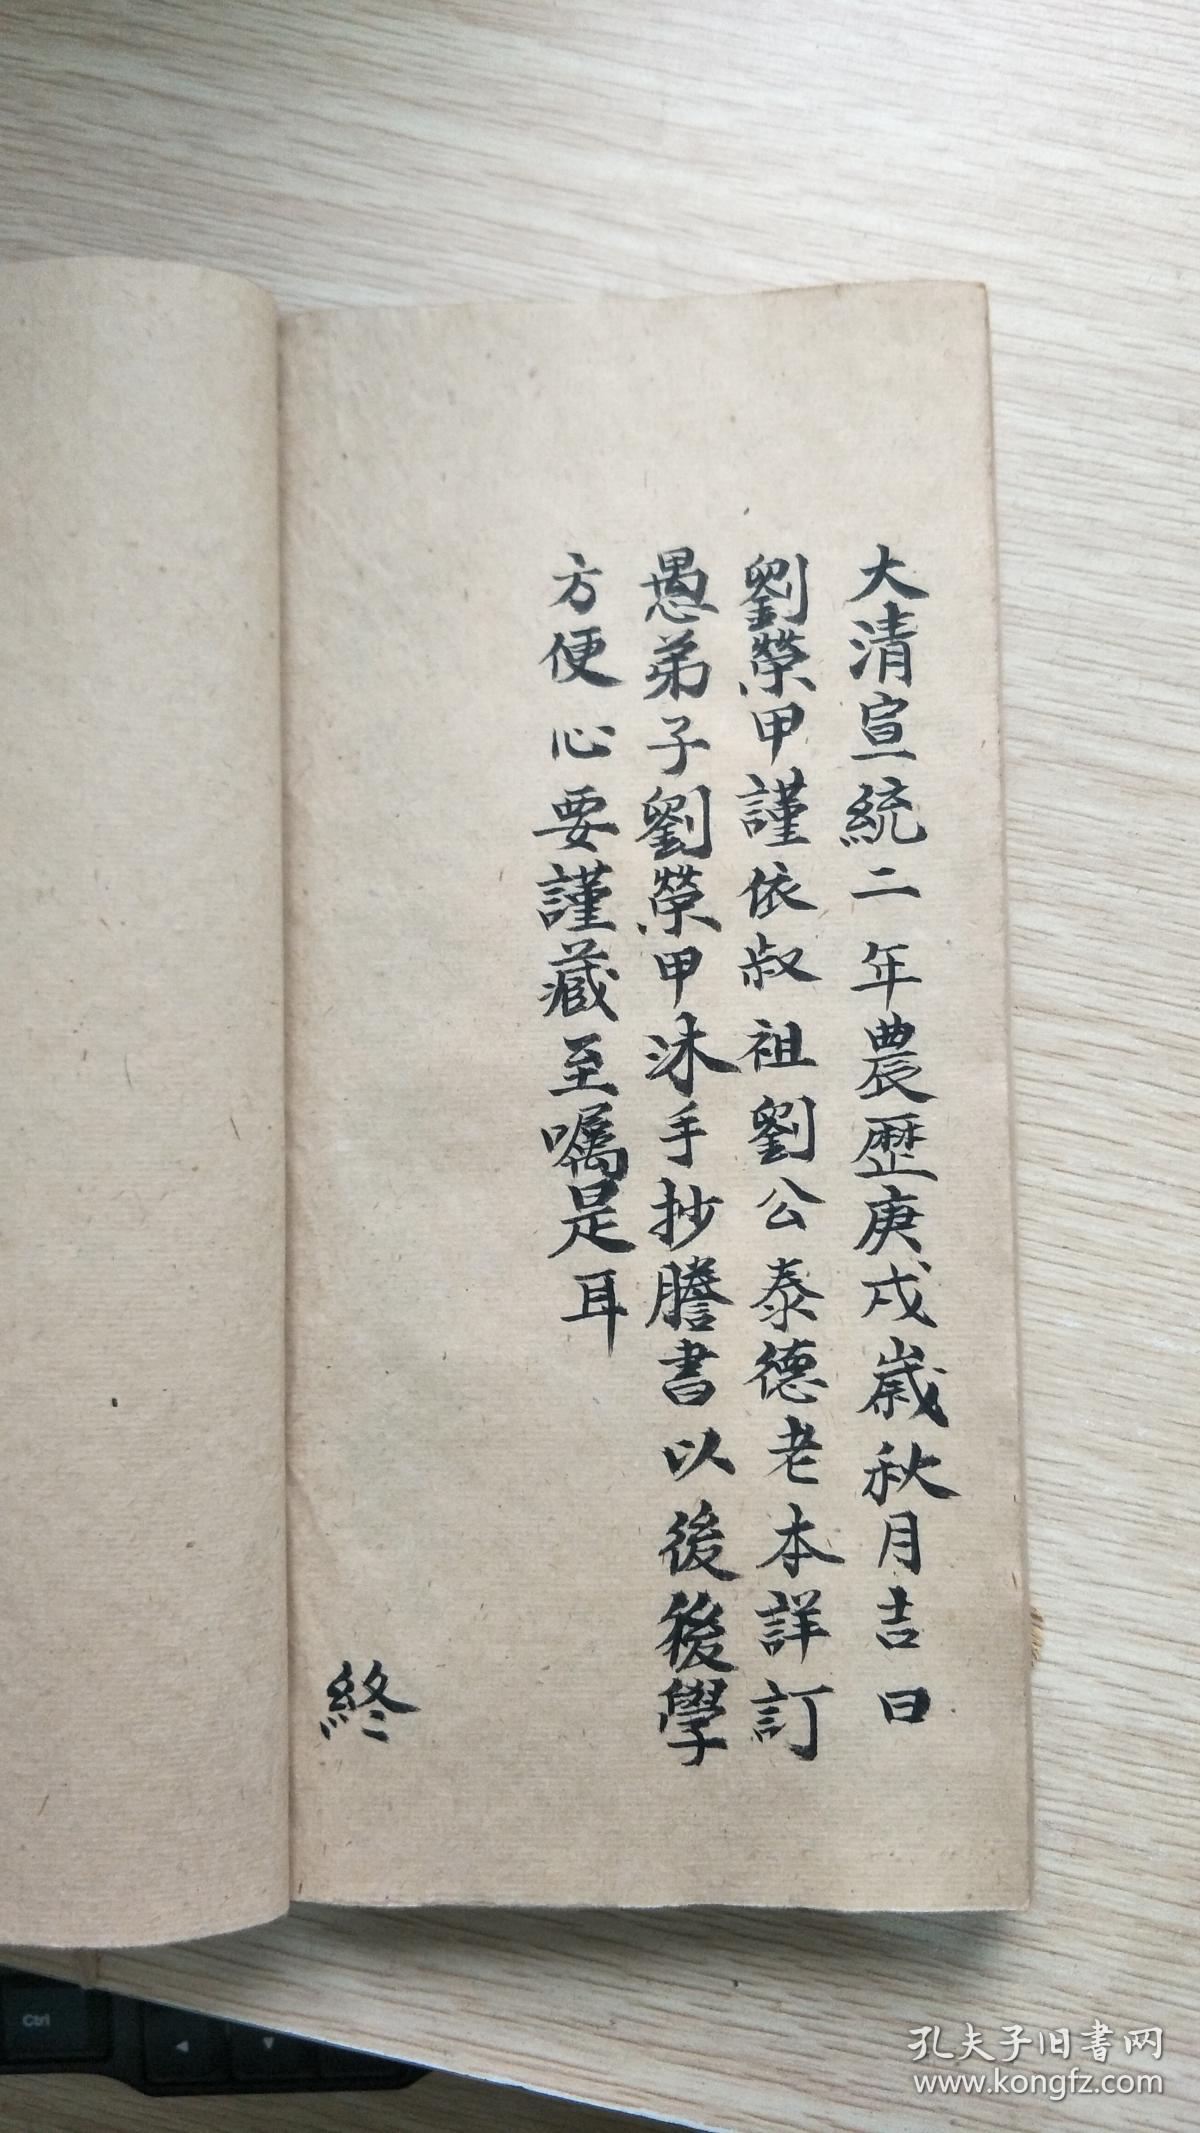 大清宣統二年農歷庚戌歲秋月吉日
劉榮甲謹依叔祖劉公泰德老本詳訂
愚弟子劉榮甲沐手抄謄書以後後學
方便心要謹藏至囑是耳
終
孔夫子旧書网
www.kongfz.com
Ctrl